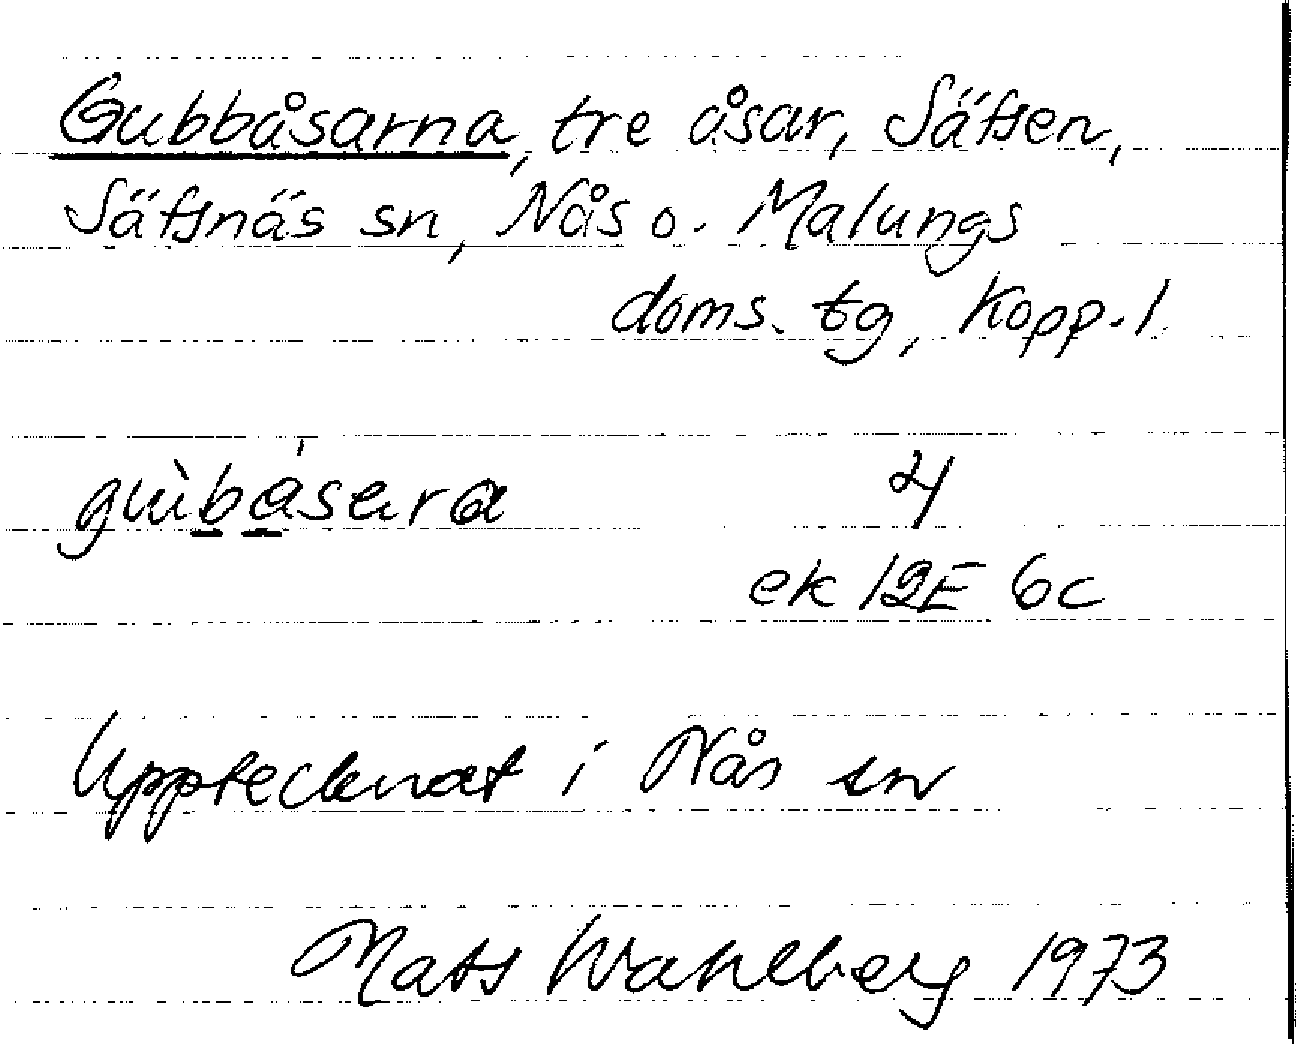 Gubbåsarna, tre åsar, Säfsen,
Säfsnäs sn, Nås o. Malungs
doms. tg, Kopp. l.
gub̲a̲sara 4
ek 12E 6c
Upptecknat i Nås sn
Mats Wahlberg 1973